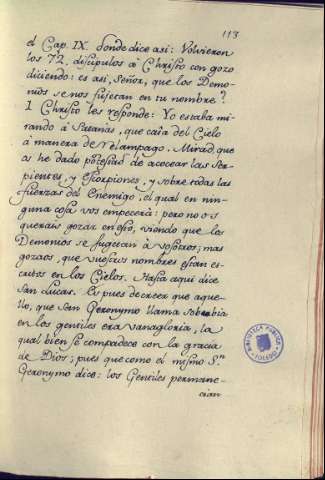 113
el Cap. IX. donde dice asi: Volvieron
los 72, discipulos à Christo con gozo
diciendo: es asi, Señor, que los Demo-
nios se nos sujetan en tu nombre?
I Christo les responde: Yo estaba mi-
rando à Satanás, que caìa del Cielo
à manera de relampago. Mirad, que
os he dado potestad de acocear las Ser-
pientes, y Escorpiones, y sobre todas las
fuerzas del Enemigo, el qual en nin-
guna cosa vos empecerà: pero no os
querais gozar en esso, viendo que los
Demonios se sugetan à vosotros; mas
gozaos, que vuestros nombres estan es-
critos en los Cielos. Hasta aqui dice
San Lucas. Es pues de creer que aque-
llo, que San Geronymo llama soberbia
en los gentiles era vanagloria, la
qual bien se compadece con la gracia
de Dios; pues que como el mismo Sn.
Geronymo dice: los Gentiles permane-
cian
BIBLIOTECA PUBLICA
TOLEDO